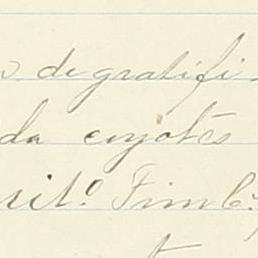 de gratifi-
da coyotes
sit.º Timb.